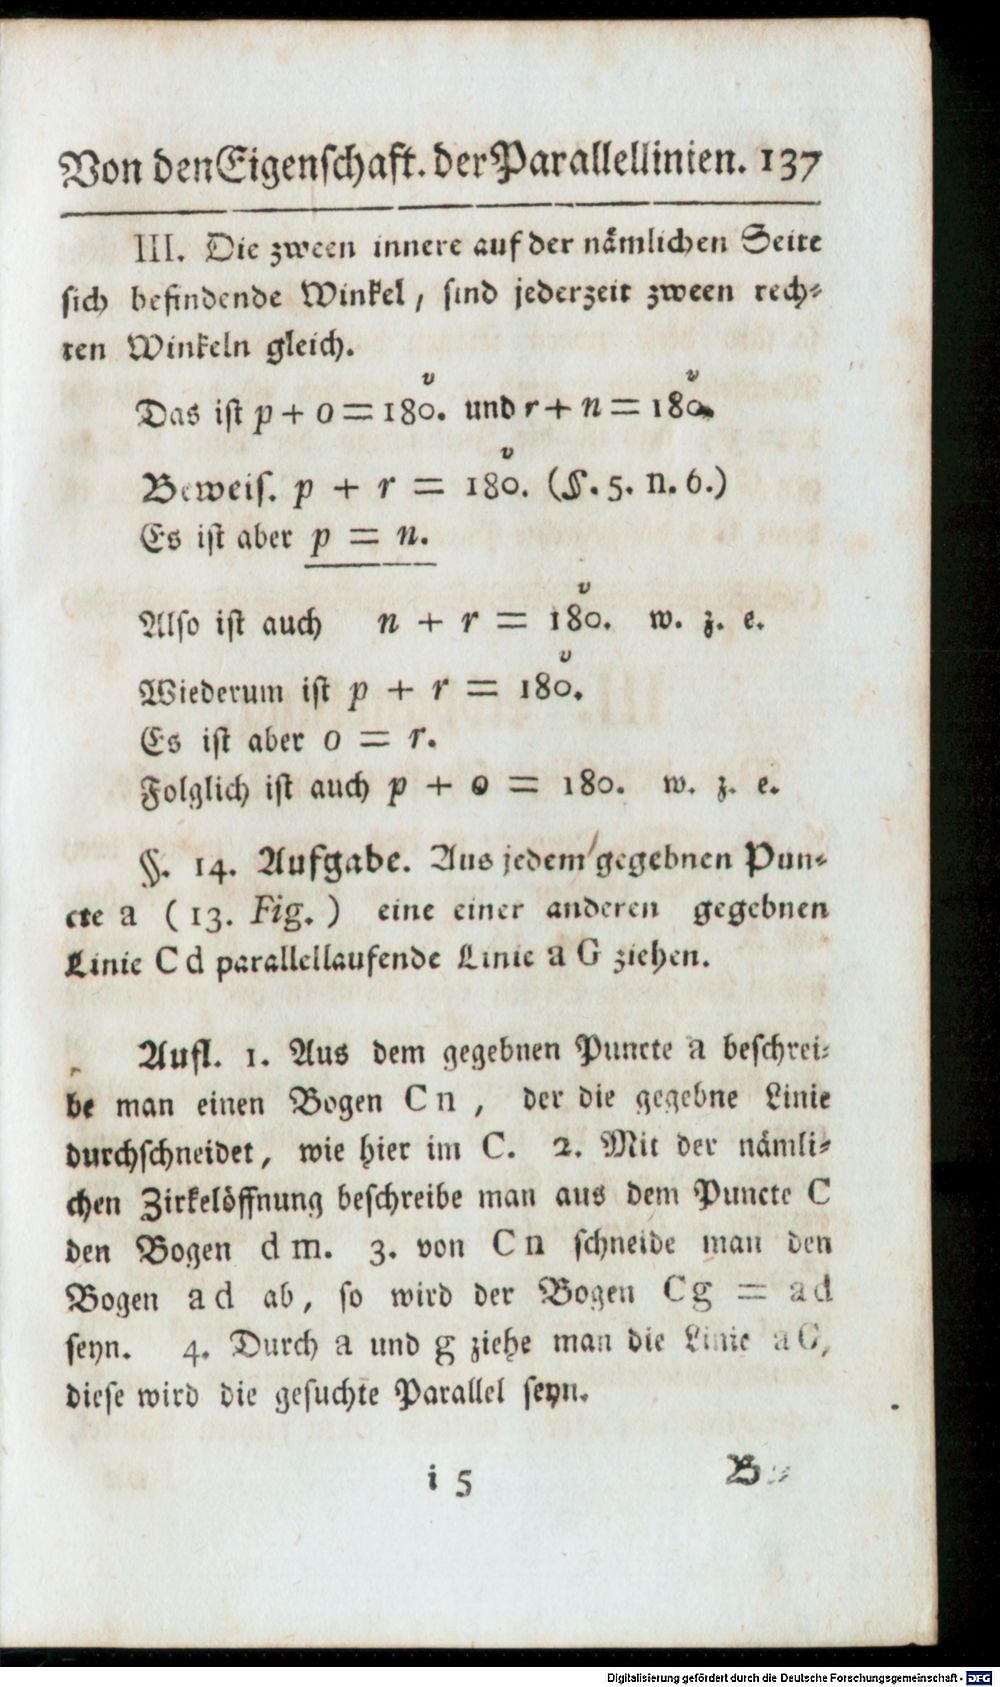 Von den Eigenschaft. der Parallellinien. 137
III. Die zween innere auf der nämlichen Seite
sich befindende Winkel, sind jederzeit zween rech-
ten Winkeln gleich.
Das ist p + o = 180ᵛ. und r + n = 180ᵛ.
Beweis. p + r = 180ᵛ. (§. 5. n. 6.)
Es ist aber p = n.
Also ist auch n + r = 180ᵛ. w. z. e.
Wiederum ist p + r = 180ᵛ.
Es ist aber o = r.
Folglich ist auch p + o = 180. w. z. e.
§. 14. Aufgabe. Aus jedem gegebnen Pun-
cte a (13. Fig.) eine einer anderen gegebnen
Linie C d parallellaufende Linie a G ziehen.
Aufl. 1. Aus dem gegebnen Puncte a beschrei-
be man einen Bogen C n, der die gegebne Linie
durchschneidet, wie hier im C. 2. Mit der nämli-
chen Zirkelöffnung beschreibe man aus dem Puncte C
den Bogen d m. 3. von C n schneide man den
Bogen a d ab, so wird der Bogen C g = a d
seyn. 4. Durch a und g ziehe man die Linie a G,
diese wird die gesuchte Parallel seyn.
i 5
Digitalisierung gefördert durch die Deutsche Forschungsgemeinschaft - DFG